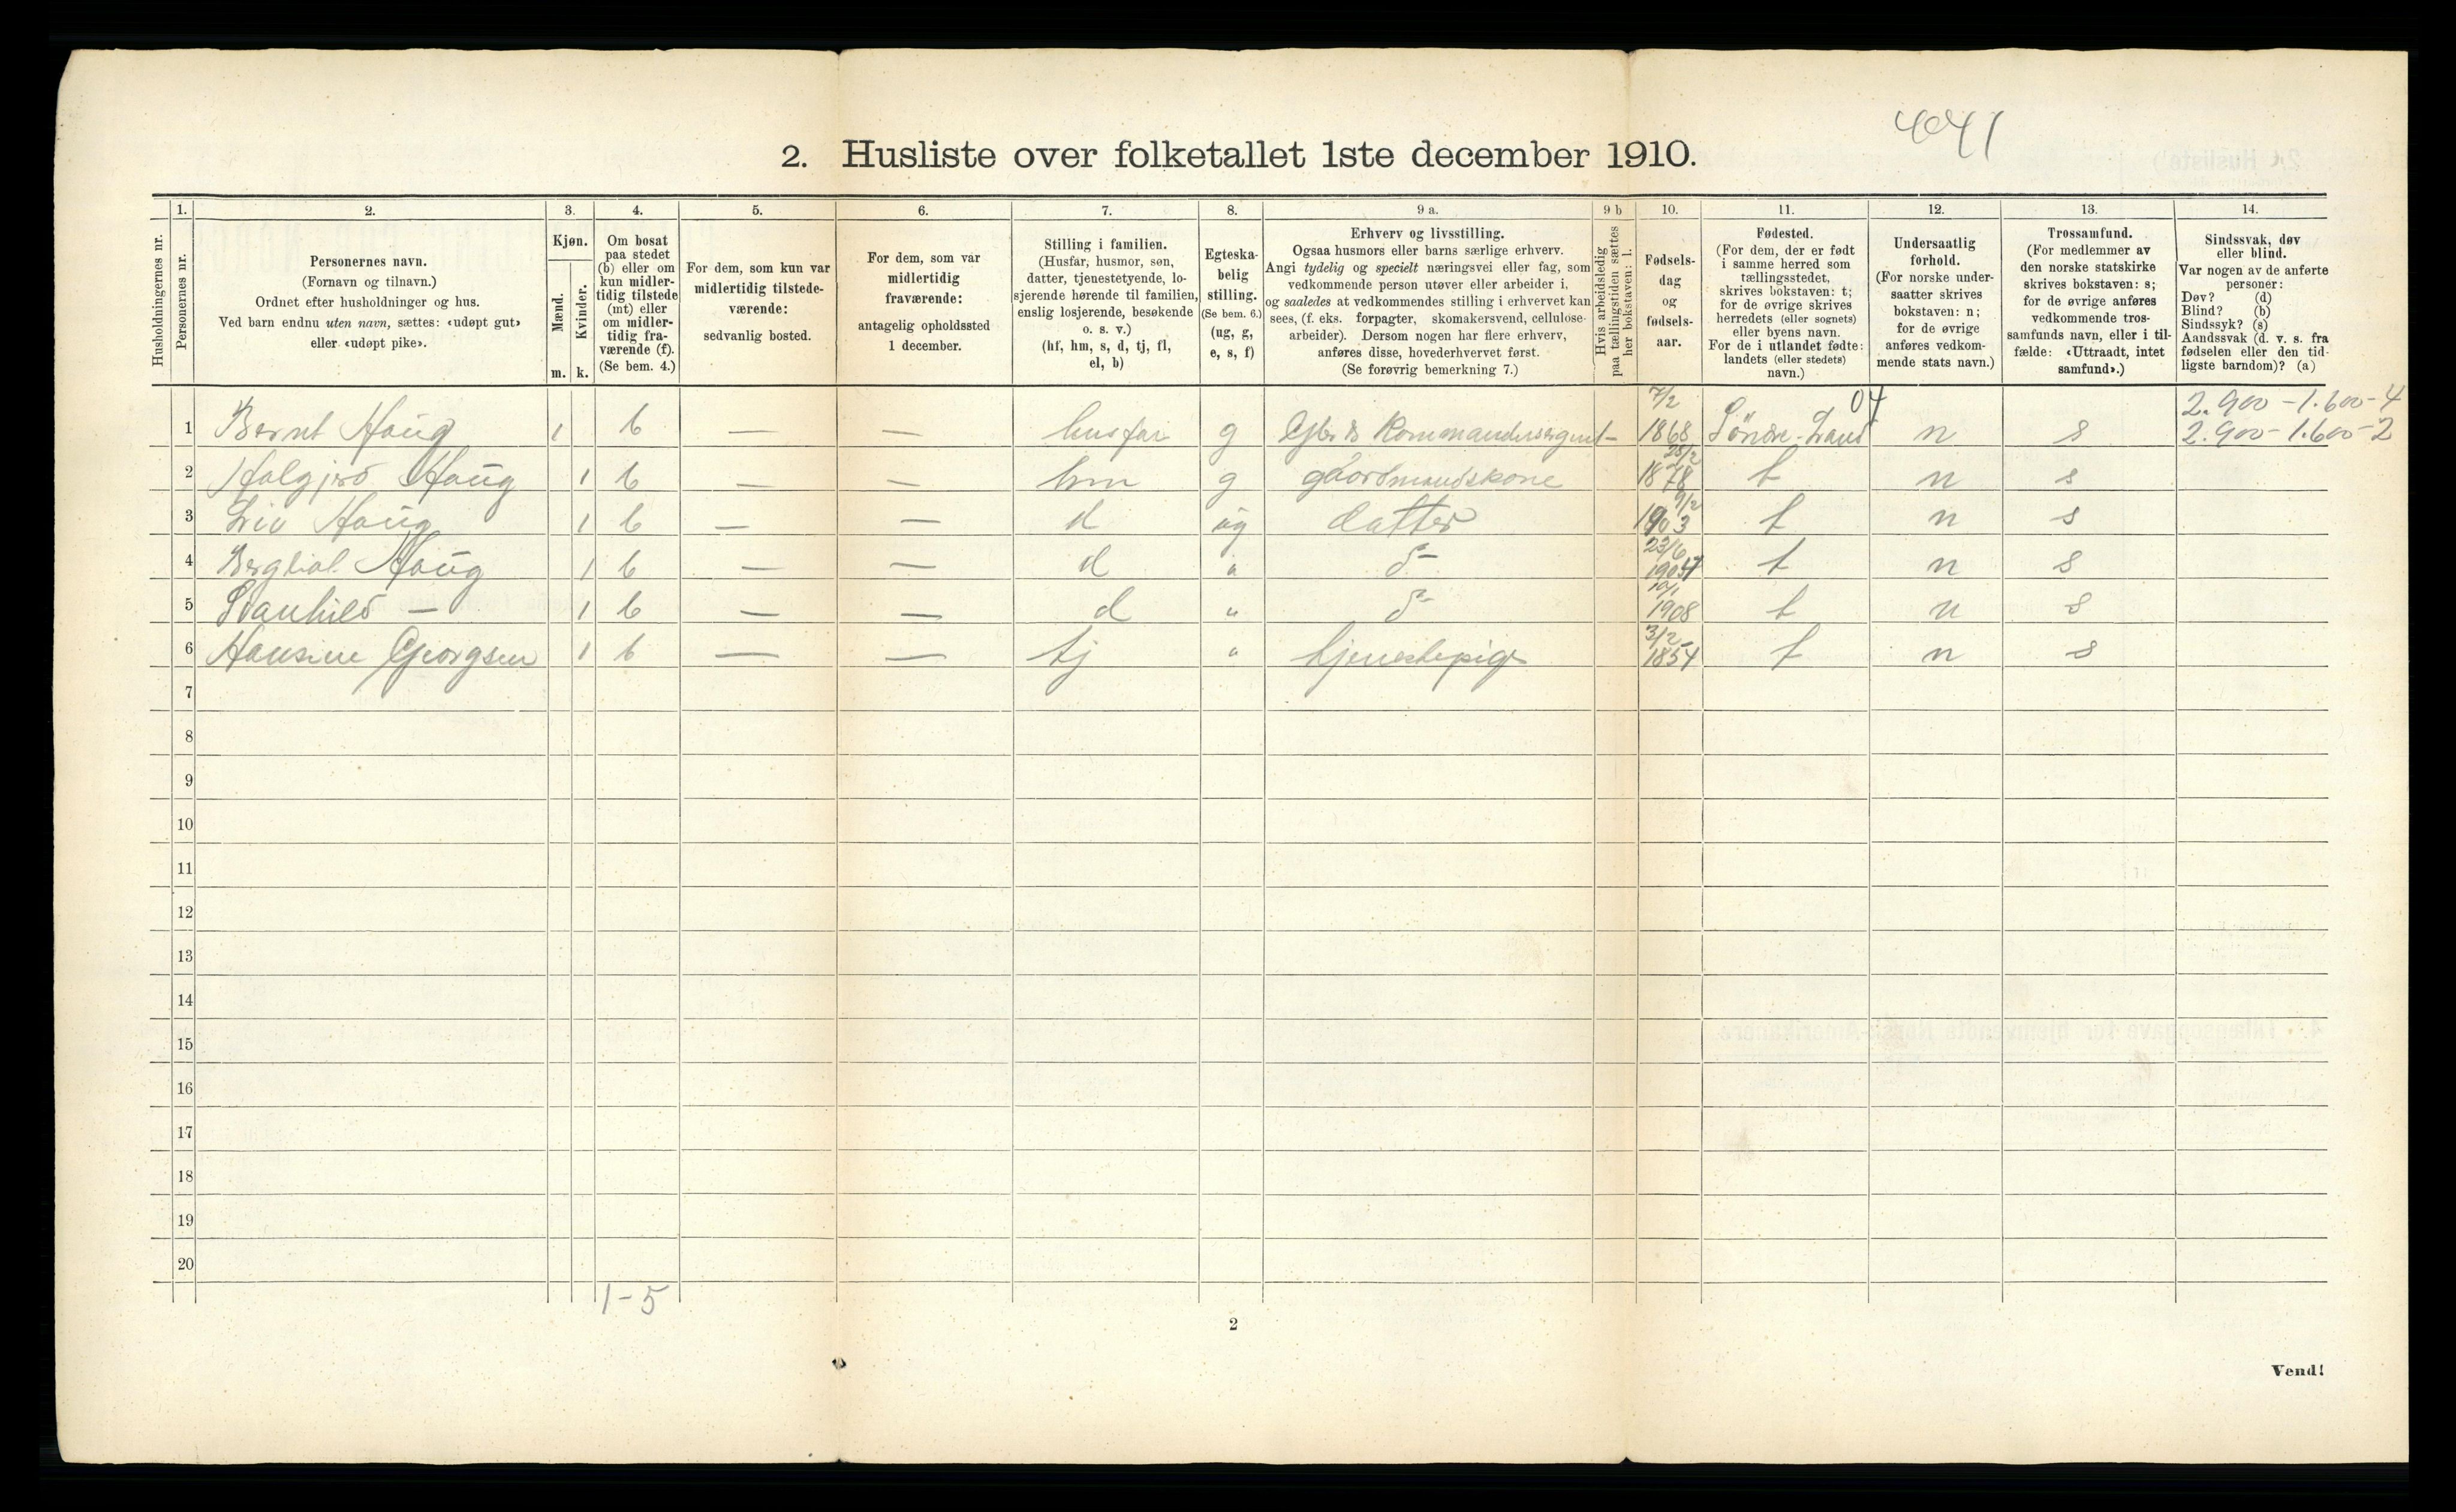 441
2. Husliste over folketallet 1ste december 1910.
1. 2. 3. 4. 5. 6. 7. 8. 9 a. 9 b 10. 11. 12. 13. 14.
Husholdningernes nr.
Personernes nr.
Personernes navn.
(Fornavn og tilnavn.)
Ordnet efter husholdninger og hus.
Ved barn endnu uten navn, sættes: «udøpt gut»
eller «udøpt pike».
Kjøn.
Mænd.
Kvinder.
m. k.
Om bosat
paa stedet
(b) eller om
kun midler-
tidig tilstede
(mt) eller
om midler-
tidig fra-
værende (f).
(Se bem. 4.)
For dem, som kun var
midlertidig tilstede-
værende:
sedvanlig bosted.
For dem, som var
midlertidig
fraværende:
antagelig opholdssted
1 december.
Stilling i familien.
(Husfar, husmor, søn,
datter, tjenestetyende, lo-
sjerende hørende til familien,
enslig losjerende, besøkende
o. s. v.)
(hf, hm, s, d, tj, fl,
el, b)
Egteska-
belig
stilling.
(Se bem. 6.)
(ug, g,
e, s, f)
Erhverv og livsstilling.
Ogsaa husmors eller barns særlige erhverv.
Angi tydelig og specielt næringsvei eller fag, som
vedkommende person utøver eller arbeider i,
og saaledes at vedkommendes stilling i erhvervet kan
sees, (f. eks. forpagter, skomakersvend, cellulose-
arbeider). Dersom nogen har flere erhverv,
anføres disse, hovederhvervet først.
(Se forøvrig bemerkning 7.)
Hvis arbeidsledig
paa tællingstiden sættes
her bokstaven: l.
Fødsels-
dag
og
fødsels-
aar.
Fødested.
(For dem, der er født
i samme herred som
tællingsstedet,
skrives bokstaven: t;
for de øvrige skrives
herredets (eller sognets)
eller byens navn.
For de i utlandet fødte:
landets (eller stedets)
navn.)
Undersaatlig
forhold.
(For norske under-
saatter skrives
bokstaven: n;
for de øvrige
anføres vedkom-
mende stats navn.)
Trossamfund.
(For medlemmer av
den norske statskirke
skrives bokstaven: s;
for de øvrige anføres
vedkommende tros-
samfunds navn, eller i til-
fælde: «Uttraadt, intet
samfund».)
Sindssvak, døv
eller blind.
Var nogen av de anførte
personer:
Døv? (d)
Blind? (b)
Sindssyk? (s)
Aandssvak (d. v. s. fra
fødselen eller den tid-
ligste barndom)? (a)
7/2 04 2.900 - 1.600 - 4
1 Bernt Haug 1 b — — husfar g Kommandersergent - 1868 Søndre-Land n s 2.900 - 1.600 - 2
2 Halgjerd Haug 1 b — — hm g gaardmandskone 28/2 1878 t n s
3 Liv Haug 1 b — — d ug datter 9/2 1903 t n s
4 Bergliot Haug 1 b — — d " do- 23/6 1904 t n s
5 Svanhild — 1 b — — d " do- 10/1 1908 t n s
6 Hansine Georgsen 1 b — — tj " tjenestepige 3/2 1854 t n s
7
8
9
10
11
12
13
14
15
16
17
18
19
20
1-5
2
Vend!